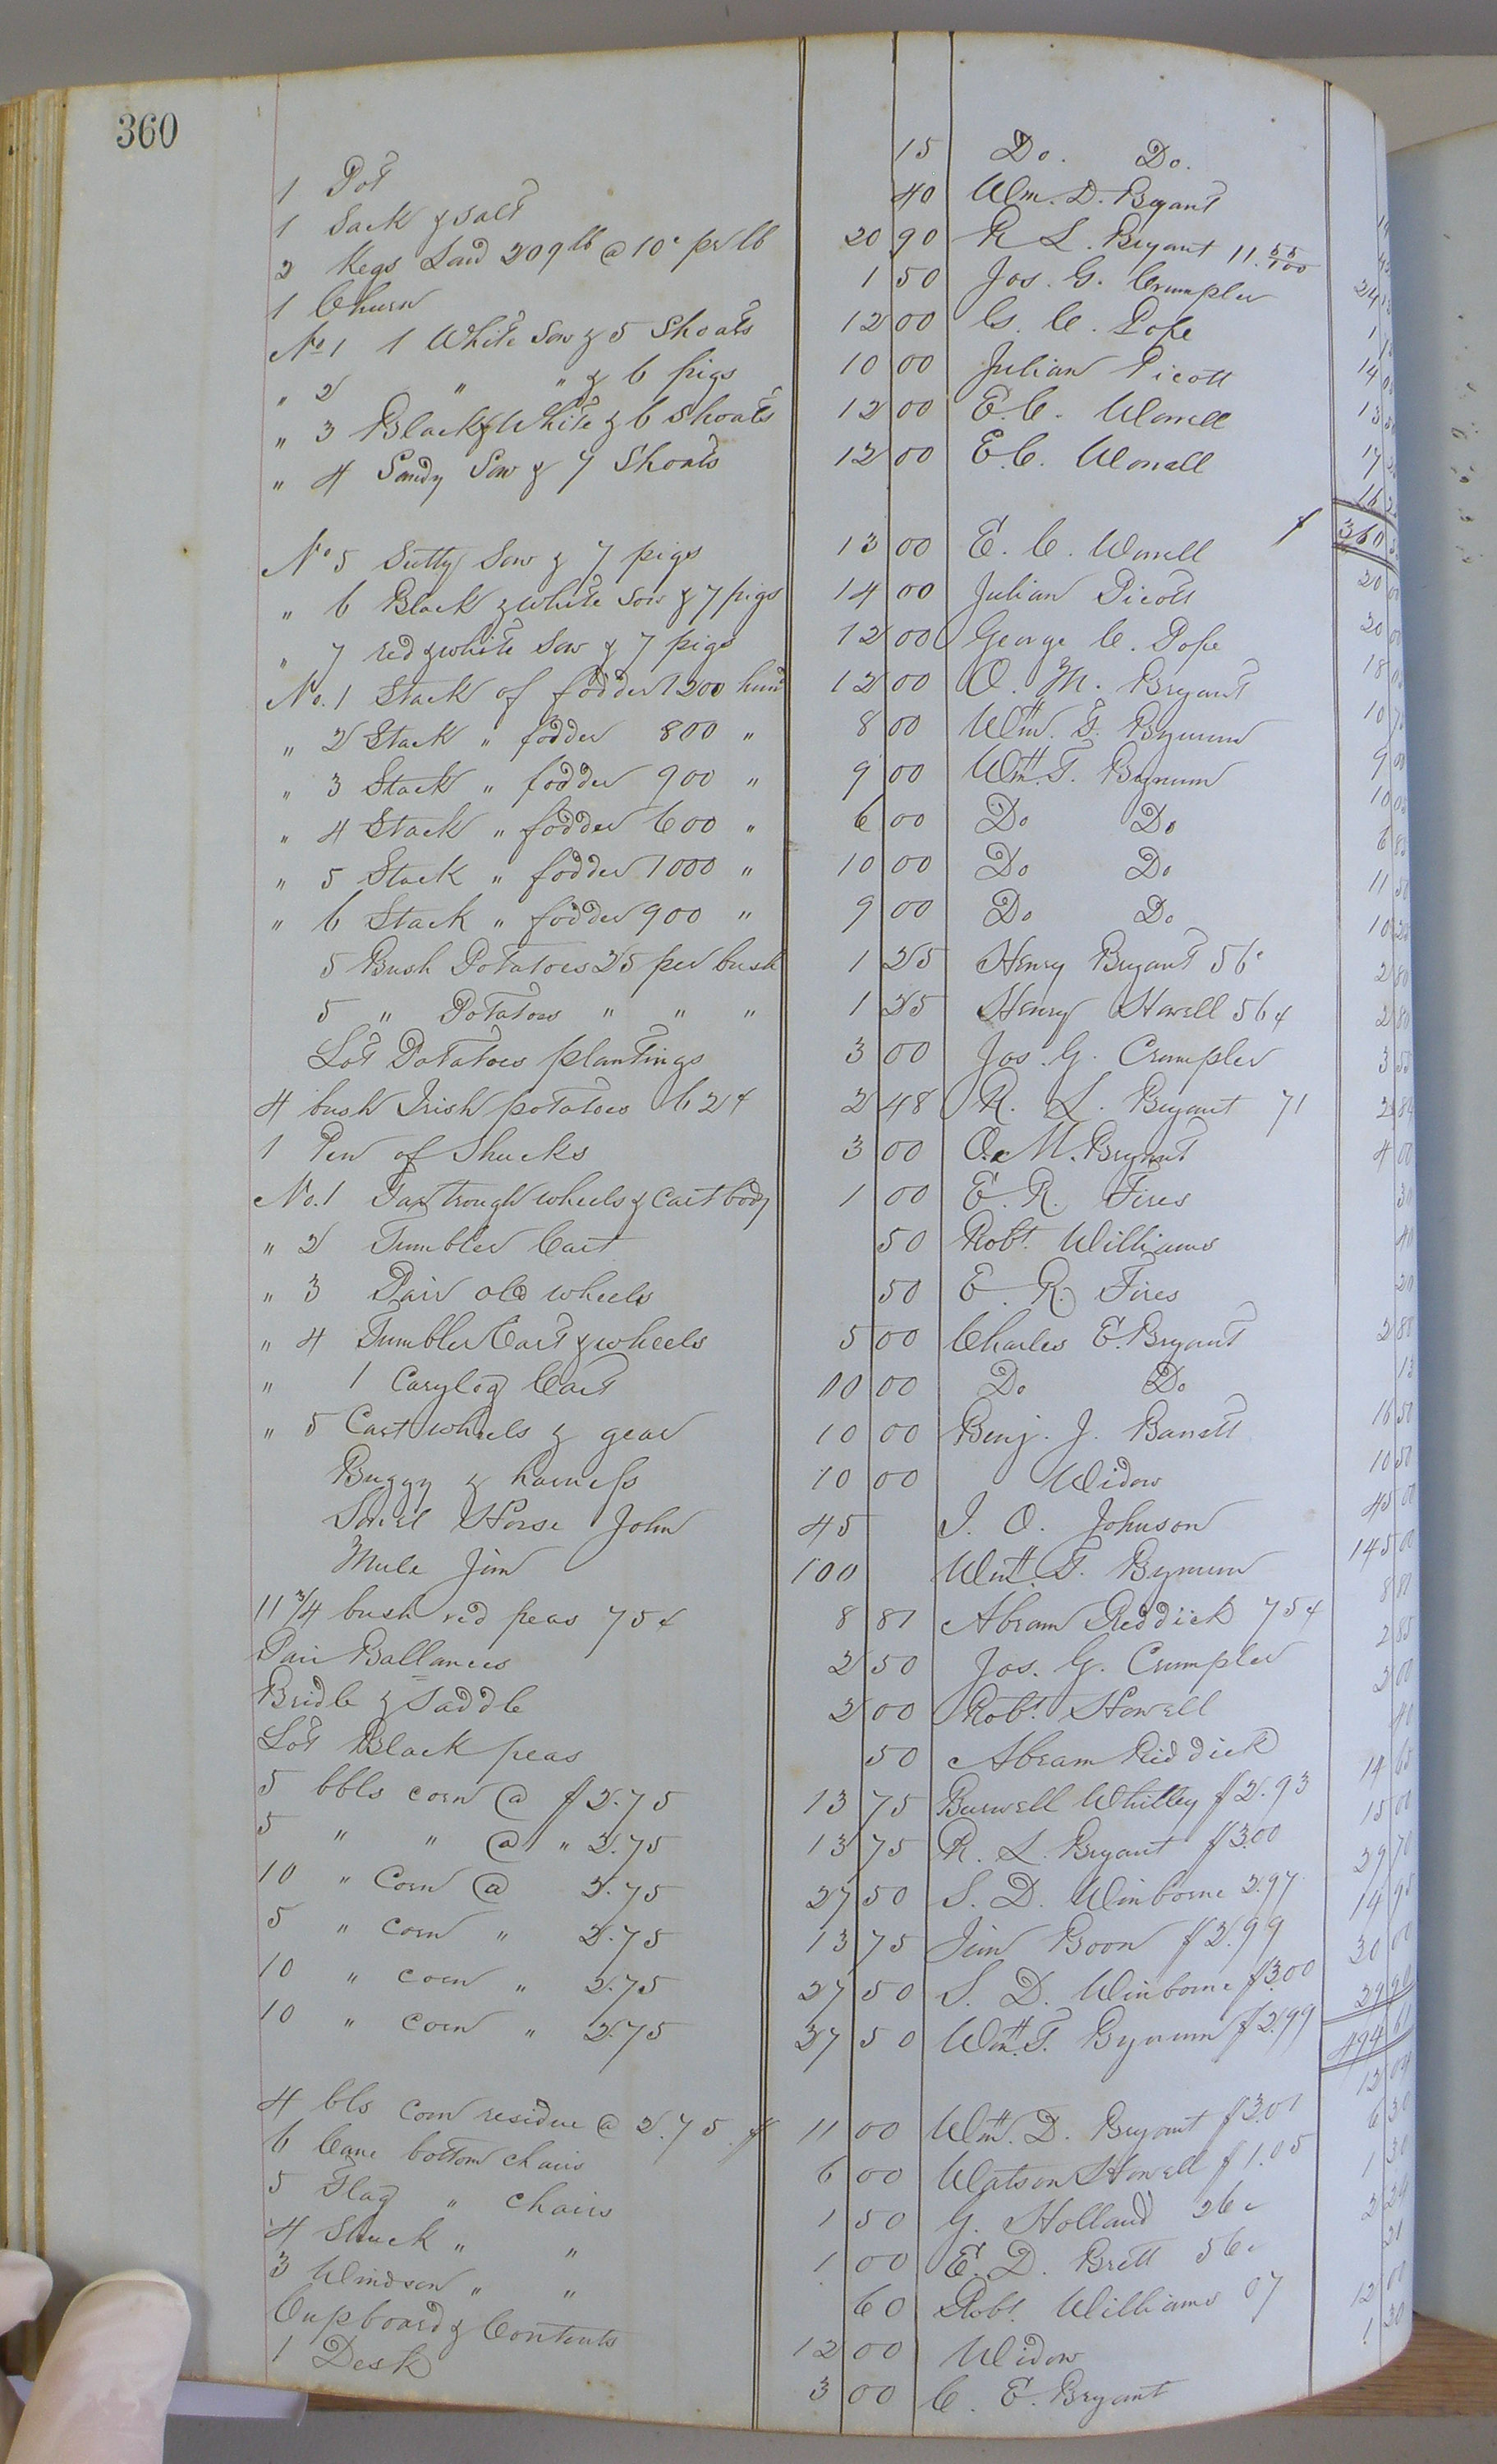 360
1 Pot 15 Do. Do.
1 Sack & Salt 40 Wm. D. Bryant
2 Kegs Lard 209 lb @ 10c pr lb 20 90 R L. Bryant 11.55/100
1 Churn 1 50 Jos. G. Crumpler 24
No 1 1 White Sow & 5 Shoats 12 00 G. C. Pope 1
" 2 " " & 6 pigs 10 00 Julian Picott 14
" 3 Black & White & 6 Shoats 12 00 E. C. Worrell 13
" 4 Sandy Sow & 7 Shoats 12 00 E. C. Worrell 17
16
No 5 Sutty Sow & 7 pigs 13 00 E. C. Worrell $ 360
" 6 Black & white Sow & 7 pigs 14 00 Julian Picott 20
" 7 red & white Sow & 7 pigs 12 00 George C. Pope 20 00
No. 1 Stack of fodder 1200 hund 12 00 O. M. Bryant 18
" 2 Stack " fodder 800 " 8 00 Wm. T. Bynum 10
" 3 Stack " fodder 900 " 9 00 Wm. T. Bynum 9 00
" 4 Stack " fodder 600 " 6 00 Do Do 10 00
" 5 Stack " fodder 1000 " 10 00 Do Do 6 80
" 6 Stack " fodder 900 " 9 00 Do Do 11 50
5 Bush Potatoes 25 per bush 1 25 Henry Bryant 56c 10 25
5 " Potatoes " " " 1 25 Henry Howell 56¢ 2 80
Lot Potatoes plantings 3 00 Jos. G. Crumpler 2 80
4 bush Irish potatoes 62¢ 2 48 R. L. Bryant 71 3 55
1 Pen of Shucks 3 00 O. M. Bryant 2 84
No. 1 Tar trough wheels & Cart body 1 00 E. R. Fires 4 00
" 2 Tumbler Cart 50 Robt. Williams 30
" 3 Pair old wheels 50 E. R. Fires 40
" 4 Tumbler Cart & wheels 5 00 Charles E. Bryant 20
" 1 Carylog Cart 10 00 Do Do 2 80
" 5 Cart wheels & gear 10 00 Benj. J. Barrett 16 50
Buggy & harness 10 00 Widow 10 50
Sorrel Horse John 45 J. O. Johnson 45 00
Mule Jim 100 Wm. T. Bynum 145 00
11 3/4 bush red peas 75¢ 8 81 Abram Reddick 75¢ 8 81
Pair Ballances 2 50 Jos. G. Crumpler 2 85
Bridle & Saddle 2 00 Robt. Howell 2 00
Lot Black peas 50 Abram Riddick 40
5 bbls corn @ $2.75 13 75 Burwell Whitley $2.93 14 65
5 " " @ " 2.75 13 75 R. L. Bryant $3.00 15 00
10 " Corn @ 2.75 27 50 S. D. Winborne 2.97 29 70
5 " corn " 2.75 13 75 Jim Boon $2.99 14 95
10 " corn " 2.75 27 50 S. D. Winborne $3.00 30 00
10 " corn " 2.75 27 50 Wm. T. Bynum $2.99 29 90
494 61
4 bls corn residue @ 2.75 $ 11 00 Wm. D. Bryant $3.01 12 04
6 Cane bottom chairs 6 00 Watson Howell $1.05 6 30
5 Flag " chairs 1 50 G. Holland 26c 1 30
4 Shuck " " 1 00 E. D. Brett 56c 2 24
3 Windsor " " 60 Robt. Williams 07 21
Cupboard & Contents 12 00 Widow 12 00
1 Desk 3 00 C. E. Bryant 1 30